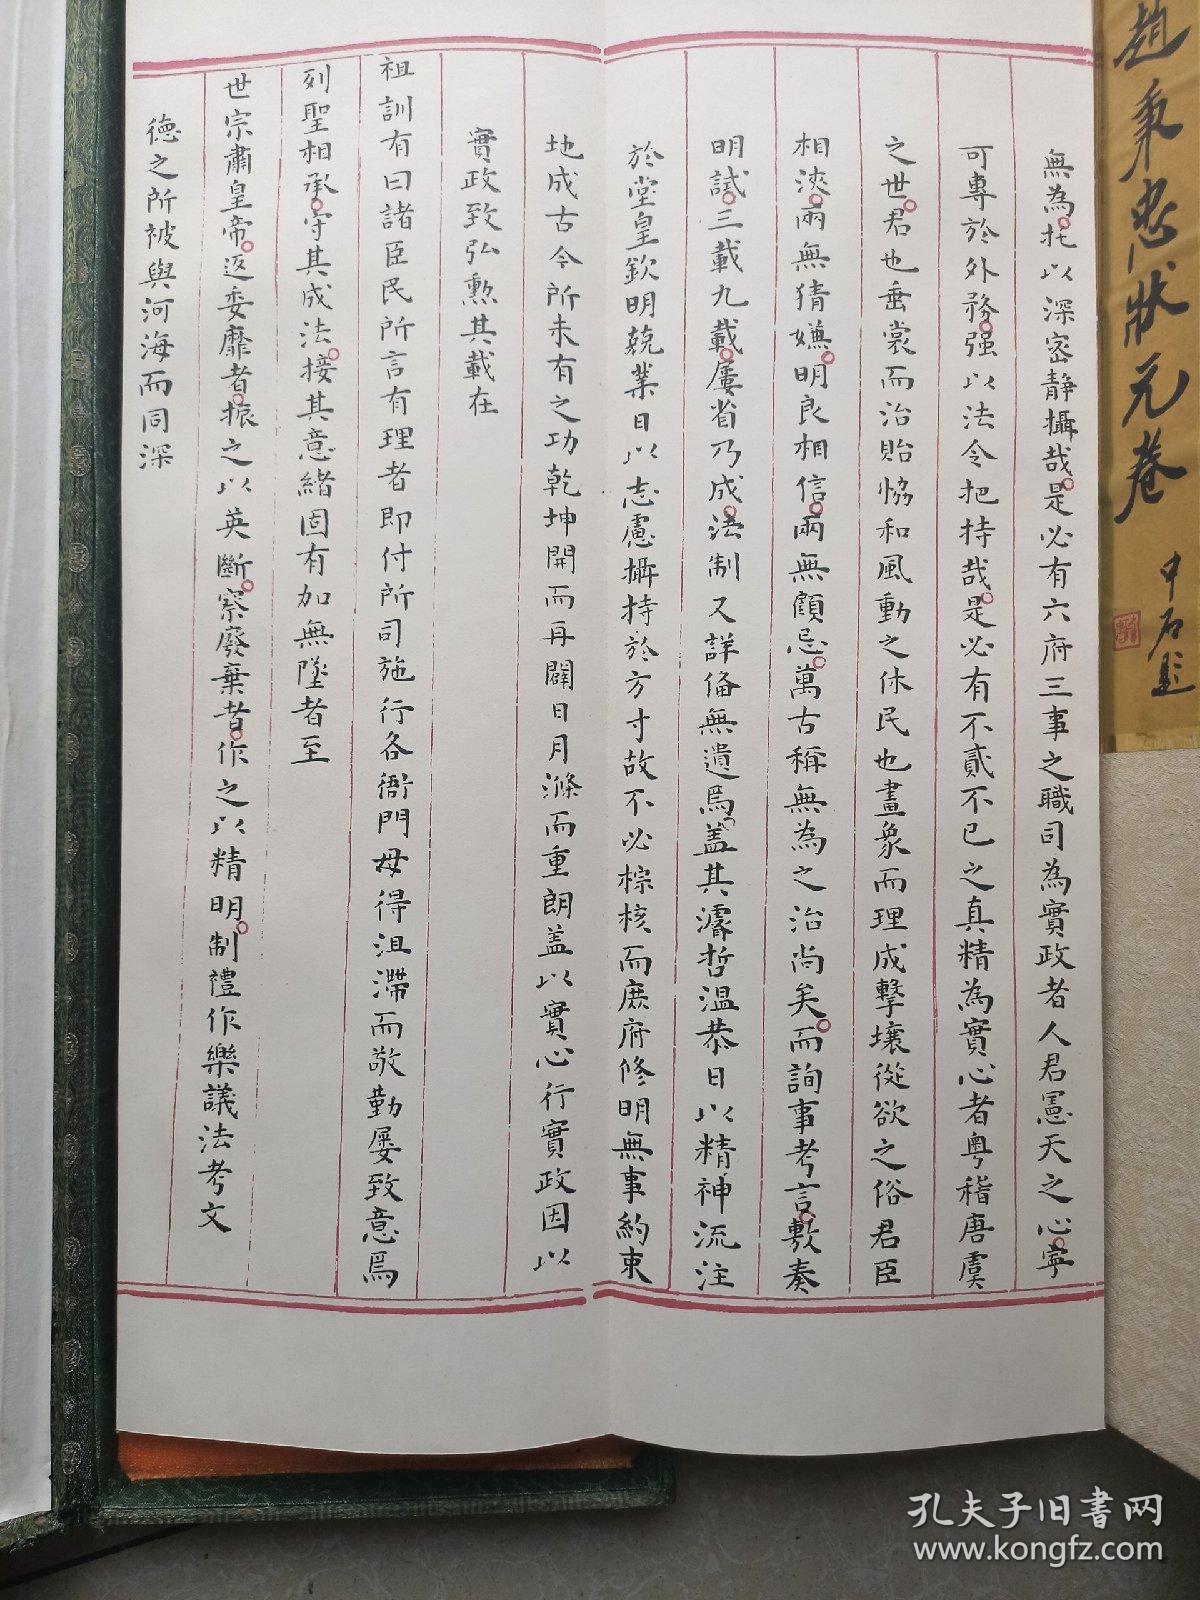 趙秉忠狀元卷
中石題
無為托以深密靜攝哉是必有六府三事之職司為實政者人君憲天之心寧
可專於外務強以法令把持哉是必有不貳不已之真精為實心者粵稽唐虞
之世君也垂裳而治貽恊和風動之休民也畫象而理成擊壤從欲之俗君臣
相浹兩無猜嫌明良相信兩無顧忌萬古稱無為之治尚矣而詢事考言敷奏
明試三載九載屢省乃成法制又詳備無遺焉盖其濬哲溫恭日以精神流注
於堂皇欽明兢業日以志慮攝持於方寸故不必棕核而庶府修明無事約束
地成古今所未有之功乾坤開而再闢日月滌而重朗盖以實心行實政因以
實政致弘勲其載在
祖訓有曰諸臣民所言有理者即付所司施行各衙門毋得沮滯而敬勤屢致意焉
列聖相承守其成法接其意緒固有加無墜者至
世宗肅皇帝返委靡者振之以英斷察廢棄者作之以精明制禮作樂議法考文
德之所被與河海而同深
孔夫子旧书网
www.kongfz.com